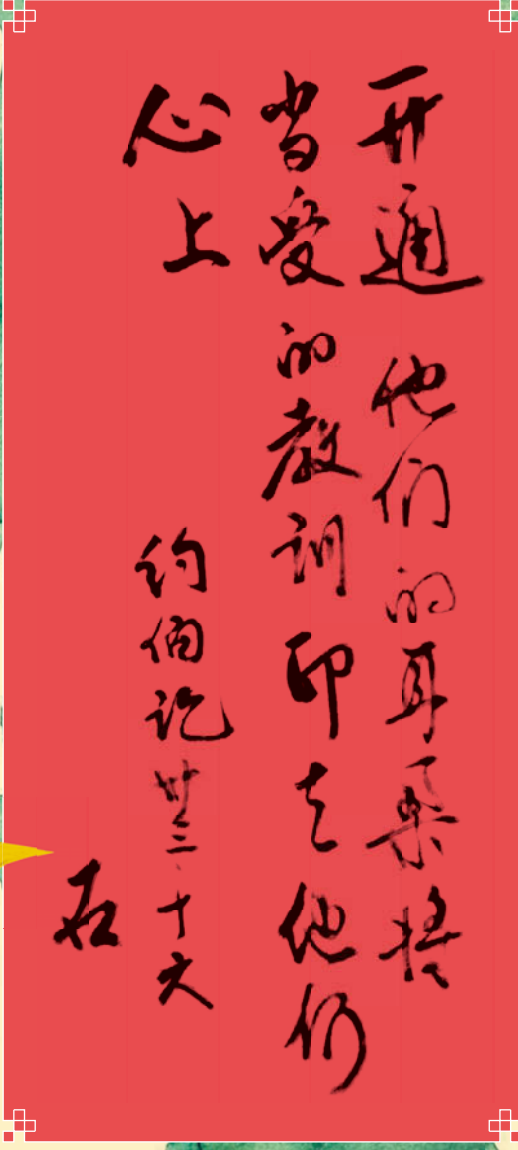 开通他们的耳朵将
当受的教训印在他们
心上
约伯记卅三·十六